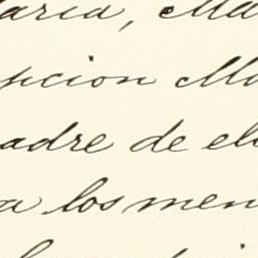 aria, Ma
pcion Ma
adre de el
a los men